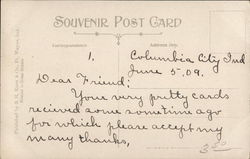 SOUVENIR POST CARD
Correspondence
Address Only
1.
Columbia City Ind
June 5.09.
Dear Friend:
Your very pretty cards
recived some sometime ago
for which please accept my
many thanks,